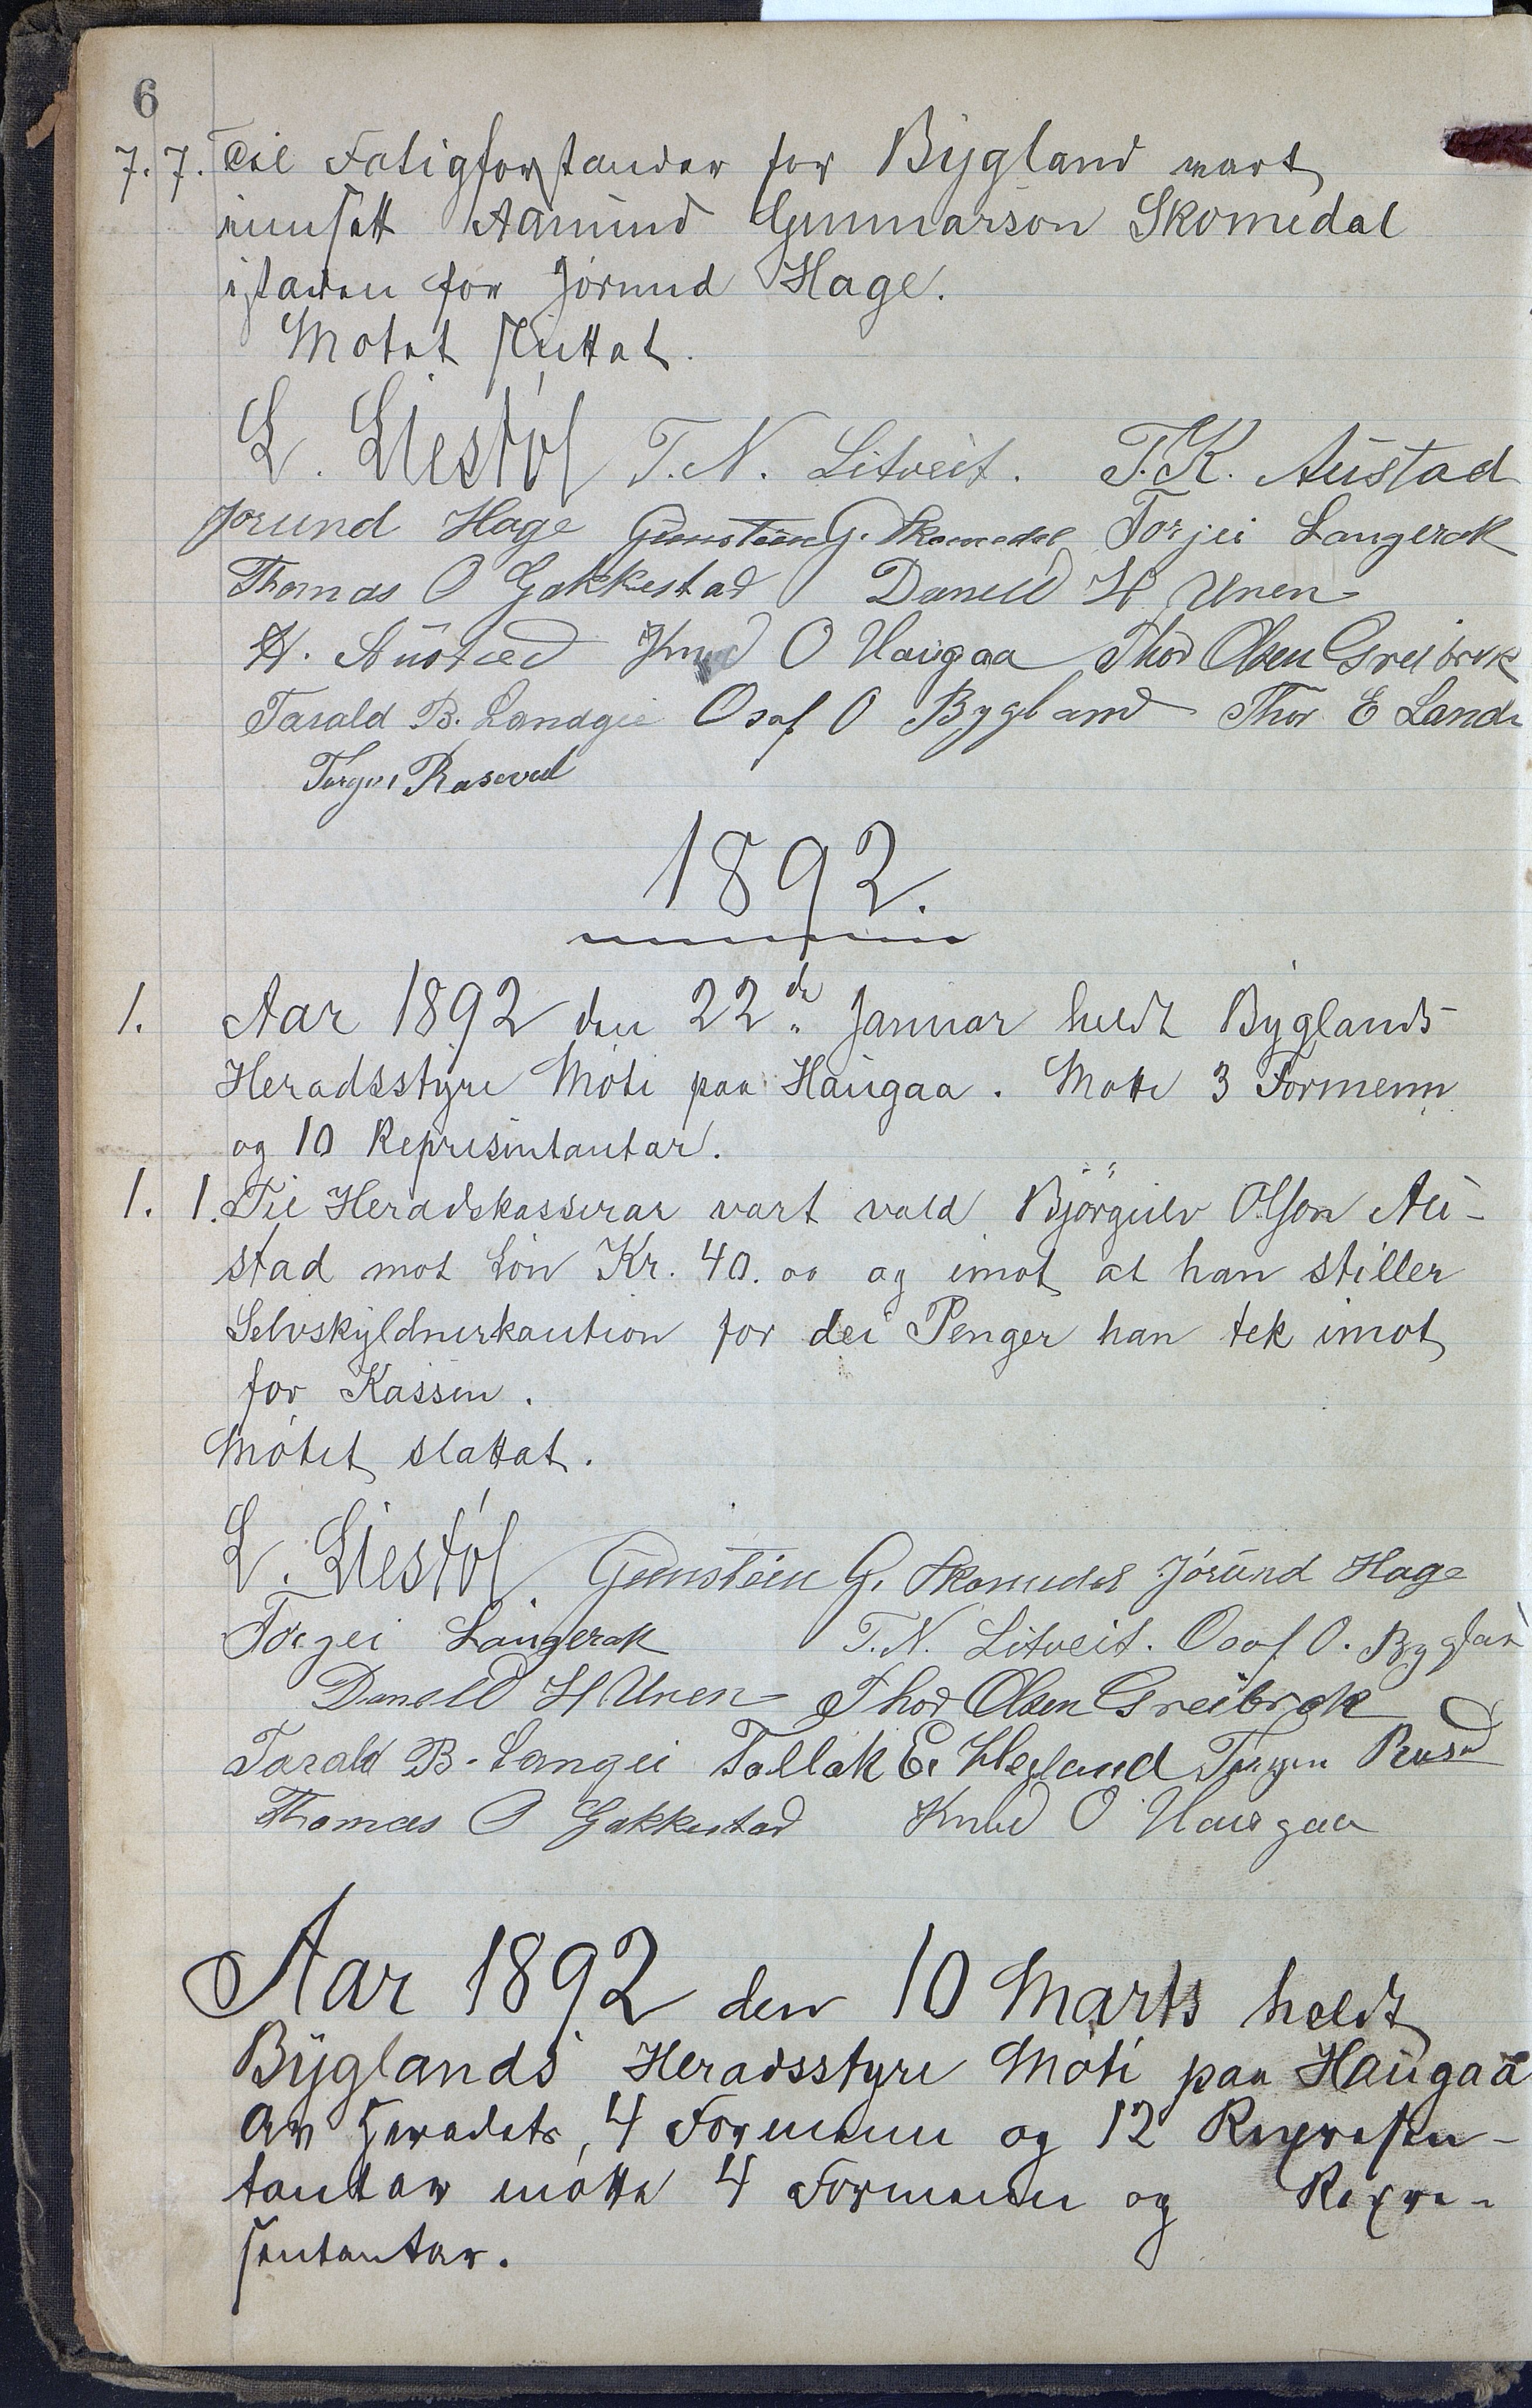 6
7. 7. Til Fatigforstandar for Bygland vart
innsett Aamund Gunnarson Skomedal
istaden for Jørund Hage.
Møtet sluttat.
L. Liestøl T. N. Litveit. T. K. Austad
Jørund Hage Gunstein G. Skomedal Torjei Langerak
Thomas O Gakkestad Daniell H Unen
H. Austad Knud O Haugaa Thor Olsen Greibrok
Tarald B. Landgei Osof O Bygland Thor E Lande
Torgei Rasevel
1892.
1. Aar 1892 den 22de Januar heldt Byglands
Heradsstyre Møte paa Haugaa. Møtte 3 Formenn
og 10 Representantar.
1. 1. Til Heradskasserar vart vald Bjørgulv Olson Au-
stad mot Løn Kr. 40.00 og imot at han stiller
Selvskyldnerkaution for dei Penger han tek imot
for Kassen.
Møtet slattat.
L. Liestøl Gunstein G. Skomedal Jørund Hage
Torgei Langerak T. N. Litveit. Osof O. Bygland
Daniell H Unen Thor Olsen Greibrok
Tarald B. Langei Tallak E. Torgei
Thomas O Gakkestad Knud O Haugaa
Aar 1892 den 10 Marts heldt
Byglands Heradsstyre Møte paa Haugaa
Av Heradets, 4 Formenn og 12 Represen-
tantar møtte 4 Formenn og Repre-
sentantar.